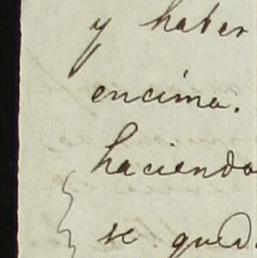 y haber
encima.
haciendo
se qued